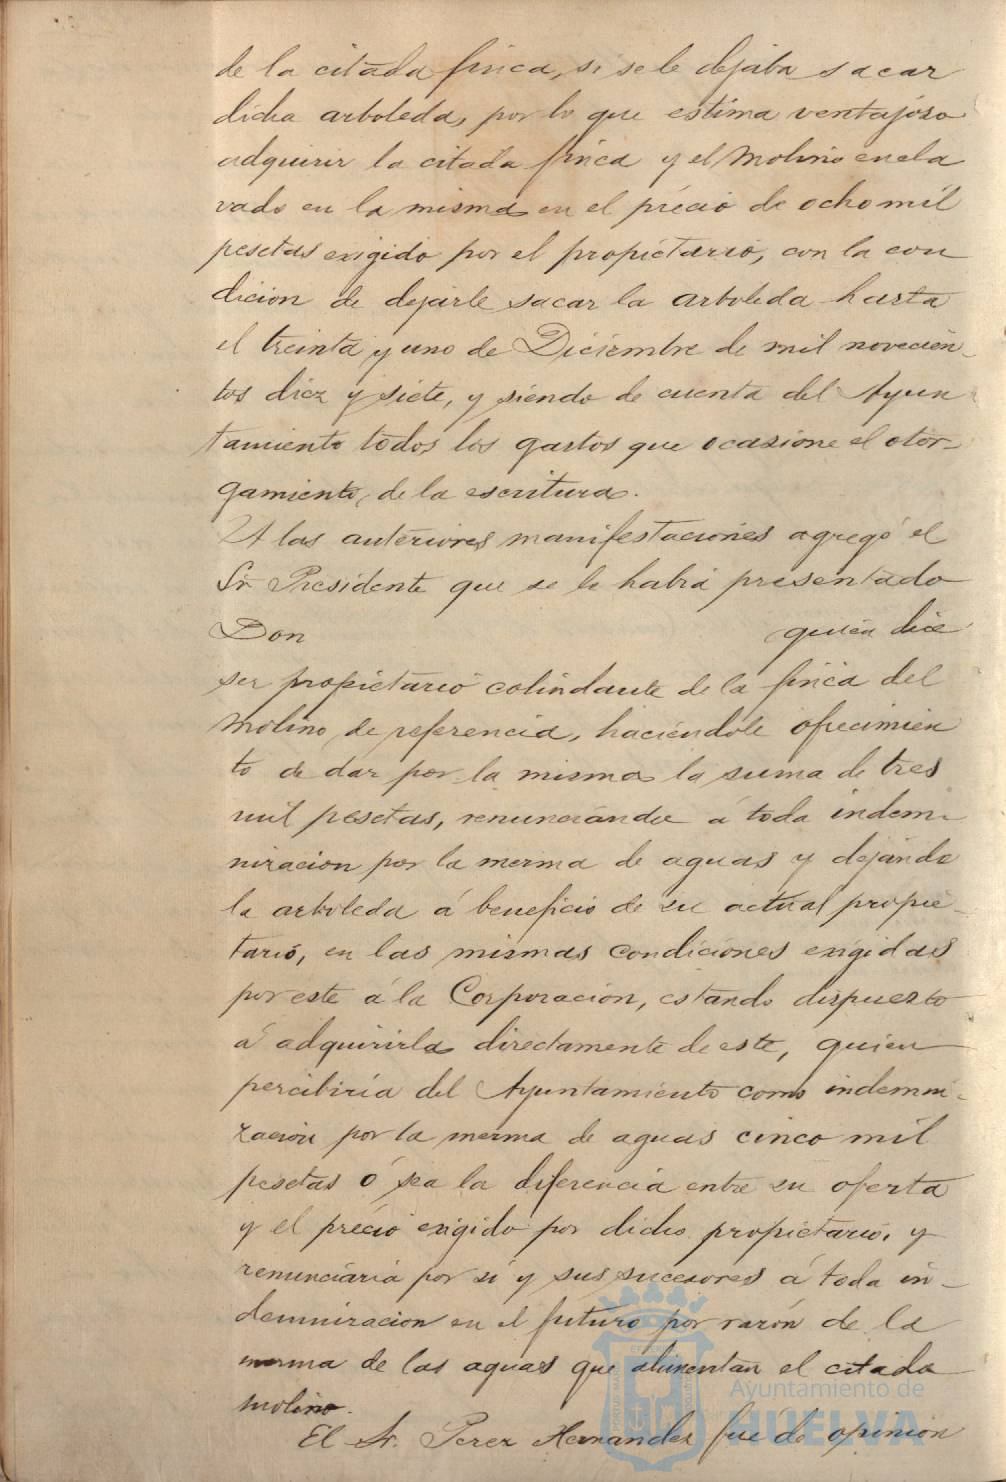 de la citada finca, si se le dejaba sacar
dicha arboleda, por lo que estima ventajoso
adquirir la citada finca y el Molino encla
vado en la misma en el précio de ocho mil
pesetas exigido por el propietario, con la con
dicion de dejarle sacar la arboleda hasta
el treinta y uno de Diciembre de mil novecien-
tos diez y siete, y siendo de cuenta del Ayun
tamiento todos los gastos que ocasione el otor-
gamiento de la escritura.
A las anteriores manifestaciones agregó el
Sr. Presidente que se le habia presentado
Don quien dice
ser propietario colindante de la finca del
Molino de referencia, haciéndole ofrecimien
to de dar por la misma la suma de tres
mil pesetas, renunciando á toda indem-
nizacion por la merma de aguas y dejando
la arboleda á beneficio de su actual propie-
tario, en las mismas condiciones exigidas
por este á la Corporación, estando dispuesto
á adquirirla directamente de este, quien
percibiría del Ayuntamiento como indemni-
zación por la merma de aguas cinco mil
pesetas ó sea la diferencia entre su oferta
y el précio exigido por dicho propietario, y
renunciaria por sí y sus sucesores á toda in-
demnizacion en el futuro por razón de la
merma de las aguas que alimentan el citado
molino.
El Sr. Perez Hernandez fue de opinion
Ayuntamiento de
HUELVA